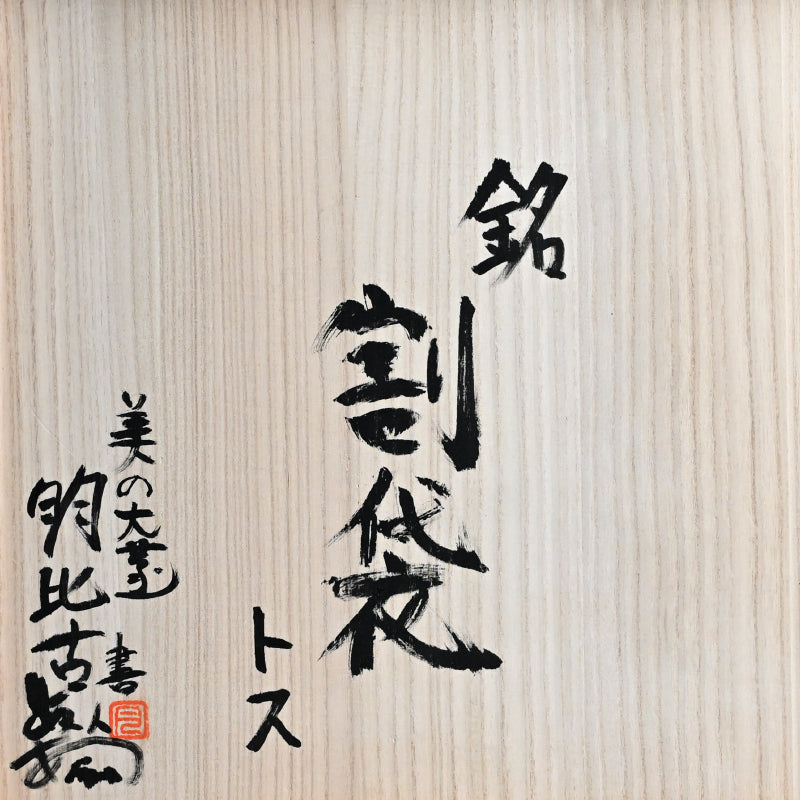 銘
割袋
トス
美の大
明比古
書